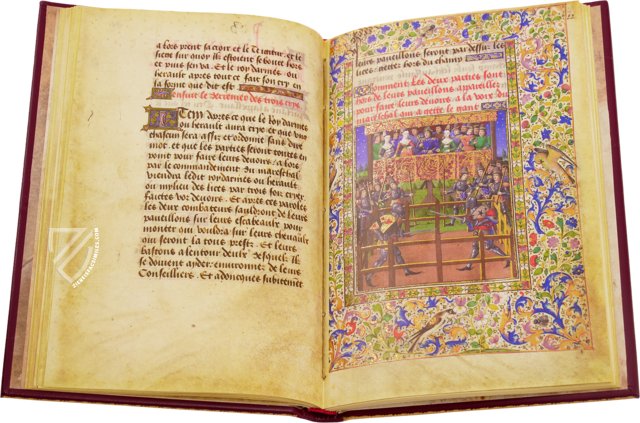 a lors prent sa croix et le
siette sur quoy il estoient se soient hors
et puis sen va. Et le roy darmes ou
herault apres tout ce fait son cry en
la forme que dit est
Ensuit le derrenier des trois crys
ITEM apres ce que le Roy darmes
ou herault aura crye et que vns
chascun sera assiz et ordonne sans dire
mot et que les parties seront toutes en
point pour faire leurs devoirs. a lors
par le commandement du mareschal
viendra ledit roy darmes ou herault
ou milieu des lices par trois foiz crier
faictes voz devoirs. Et apres ces paroles
les deux combateurs sauldront de leurs
paueillons sur leurs escabeaulx pour
monter qui vouldra sur leurs chevaulx
qui seront la tous prestz. Et leurs
bastons a lentour deulx desquelz ilz
se doivent aider environnez de leurs
Conseilliers. Et adoncques subitement
leurs paveillons seront par dessus les
lices gettez hors du champ
Comment Les deux parties sont
hors de leurs paveillons appareillez
pour faire leurs devoirs a la voix du
mareschal qui a gette le gant
ZIEREISFACSIMILES.COM